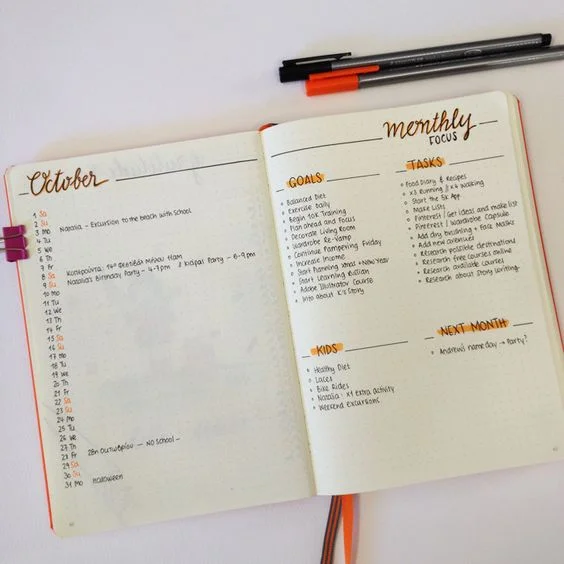 October
1 Sa
2 Su
3 Mo Natalia - Excursion to the beach with school
4 Tu
5 We
6 Th
7 Fr
8 Sa Φεστιβάλ Μήλου 11am
9 Su Natalia's Birthday Party - 4-7pm // Party - 6-9pm
10 Mo
11 Tu
12 We
13 Th
14 Fr
15 Sa
16 Su
17 Mo
18 Tu
19 We
20 Th
21 Fr
22 Sa
23 Su
24 Mo
25 Tu
26 We
27 Th
28 Fr 28η Οκτωβρίου — NO SCHOOL -
29 Sa
30 Su
31 Mo Halloween
Monthly
FOCUS
GOALS
Balanced Diet
Exercise Daily
Begin 10K Training
Plan ahead and Focus
Decorate Living Room
Wardrobe Re-Vamp
Continue Pampering Friday
Increase Income
Start Planning Xmas + New Year
Start Learning Italian
Adobe Illustrator Course
Info about K's Story
TASKS
Food Diary & Recipes
x3 Running // x4 Walking
Start the 5k App
Make Lists
Pinterest / Get ideas and make list
Pinterest / Wardrobe Capsule
Add dry brushing + Face Masks
Add new avenues
Research possible destinations
Research free courses online
Research available courses
Research about Story Writing
KIDS
Healthy Diet
Laces
Bike Rides
Natalia - x1 extra activity
Weekend excursions
NEXT MONTH
Andrew's nameday → Party?